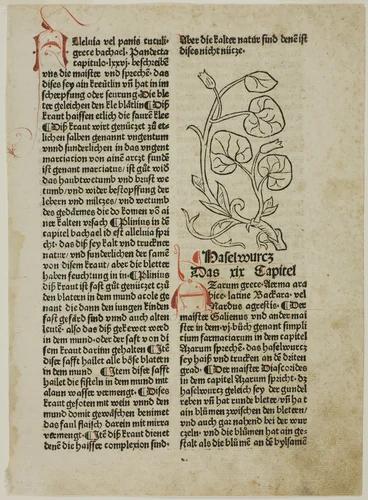 Alleluia vel panis cuculi·
grece bachael· Pandecta
capitulo·lxxvj· beschreibē
vns die maister vnd sprechē· das
dises sey ain kreütlin vn̄ hat in im
scherpffung oder seürung· Die ble
ter geleichen den kle bletlin ¶ Diß
kraut haissen etlich die saurē klee
¶ Diß kraut wirt genüczet zů et
lichen salben genannt vngentum
vnnd sunderlichen in das vngent
marciacon von ainē arczt fundē
ist genant marciatus/ ist gůt wid
das haubtwetumb vnd brust we
tumb/ vnd wider bestopffung der
lebern vnd milczes/ vnd wetumb
des gedärmes die do komen vō ai
ner kalten vrsach ¶ Plinius in dē
capitel bachael id est alleluia spri
cht· das diß sey kalt vnd truckner
natur/ vnd sunderlichen der same
von disem kraut/ aber die bletter
haben feuchtung in in ¶ Plinius
diß kraut ist fast gůt genüczet zů
den blatern in dem mund acole ge
nant die dann den iungen kinden
fast gefärd sind vnnd auch alten
leuten· also das diß gekewet werd
in dem mund· oder der saft von di
sem kraut dariñ gehalten ¶ Itē
diser safft hailet alle böß blatern
in dem mund ¶ Item diser safft
hailet die fisteln in dem mund mit
alaun wasser vermengt· ¶ Dises
kraut gesoten mit wein vnnd den
mund domit gewäschen benimet
das faul flaisch darein mit mirra
vermengt· ¶ Itē diß kraut dienet
denē die haisser complexion sind·
Aber die kalter natur sind denē ist
dises nicht nücze·
Haselwurcz
Das xix Capitel
Azarum grece· Aerma ara
bice· latine Backara· vel
Nardus agrestis· ¶ Der
maister Galienus vnd ander mai
ster in dem·vj·bůch genant simplici
cium farmaciarum in dem capitel
Azarum sprechē· das haselwurcz
sey haiß vnd trucken an dē driten
grad· ¶ Der maister Diascorides
in dem capitel Azarum spricht· dz
haselwurcz geleich sey der gundel
reben vn̄ hat runde bleter/ vn̄ hat
ain blümen zwischen den bletern/
vnd auch gar nahend bei der wur
czeln· vnd die blümen hat ain ge-
stalt als die blümē an dē bylsamē